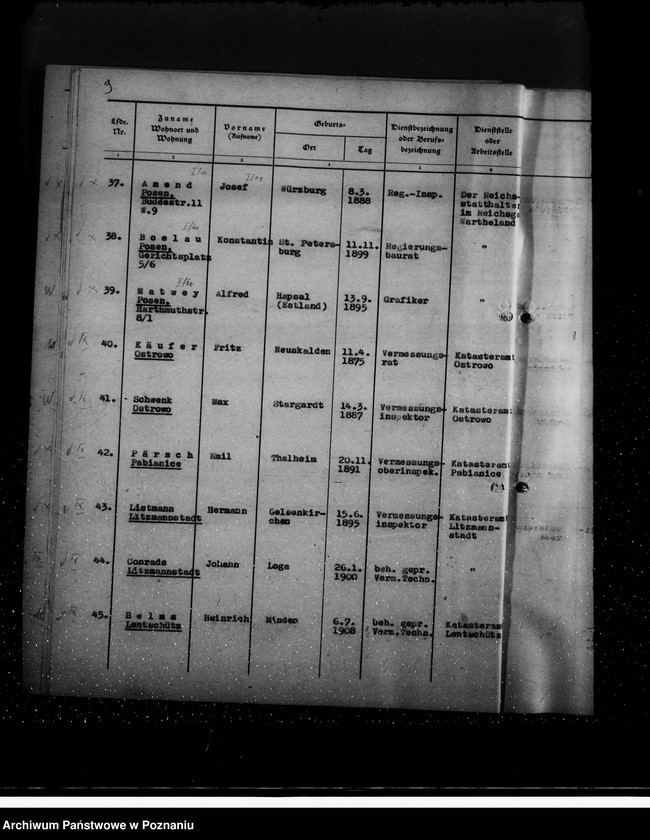 9
Lfde. Nr.
Zuname Wohnort und Wohnung
Vorname (Rufname)
Geburts-
Ort
Tag
Dienstbezeichnung oder Berufs- bezeichnung
Dienststelle oder Arbeitsstelle
37.
Amend
Josef
Würzburg
8.3.
Reg.-Insp.
Der Reichs-
Posen,
1888
statthalter
Buddestr.11
im Reichsga
W.9
Wartheland
38.
Boelau
Konstantin
St. Peters-
11.11.
Regierungs-
"
Posen,
burg
1899
baurat
Gerichtsplatz
5/6
39.
Matwey
Alfred
Hapsal
13.9.
Grafiker
"
Posen,
(Estland)
1895
Harthmuthstr.
8/1
40.
Käufer
Fritz
Neuskalden
11.4.
Vermessungs-
Katasteramt
Ostrowo
1875
rat
Ostrowo
41.
Schwenk
Max
Stargardt
14.3.
Vermessungs-
Katasteramt
Ostrowo
1887
inspektor
Ostrowo
42.
Pärsch
Emil
Thalheim
20.11.
Vermessungs-
Katasteramt
Pabianice
1891
oberinspek.
Pabianice
43.
Listmann
Hermann
Gelsenkir-
15.6.
Vermessungs-
Katasteramt
Litzmannstadt
chen
1895
inspektor
Litzmann-
stadt
44.
Conrads
Johann
Loga
26.1.
beh. gepr.
"
Litzmannstadt
1900
Verm.Techn.
45.
Helms
Heinrich
Minden
6.7.
beh. gepr.
Katasteram
Lentschütz
1908
Verm.Techn.
Lentschütz
Archiwum Państwowe w Poznaniu